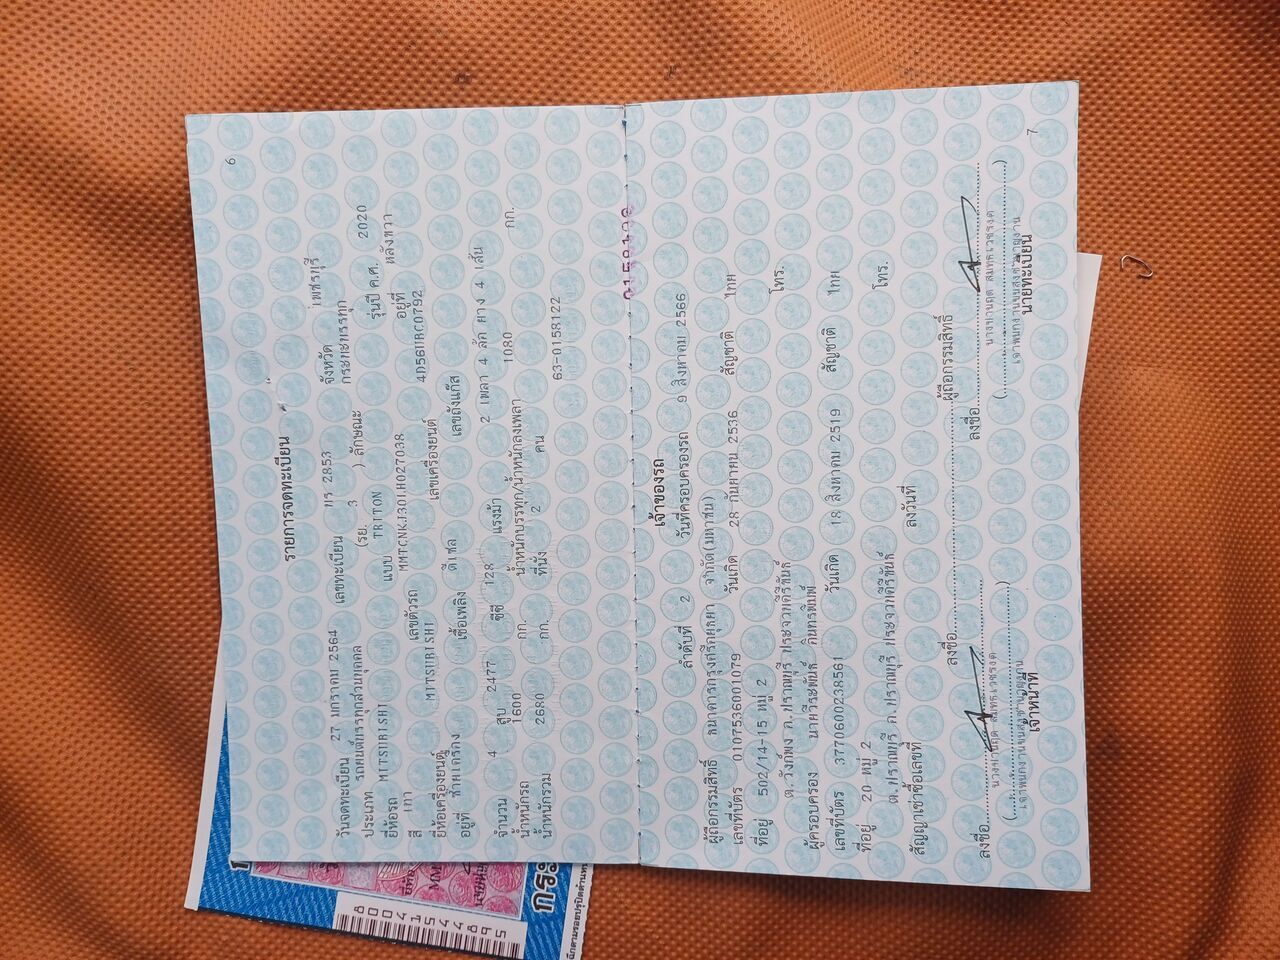 6
รายการจดทะเบียน
วันจดทะเบียน 27 มกราคม 2564 เลขทะเบียน 2853 จังหวัด เพชรบุรี
ประเภท รถยนต์บรรทุกส่วนบุคคล (รย. 3 ) ลักษณะ กระบะบรรทุก
ยี่ห้อรถ MITSUBISHI แบบ TRITON รุ่นปี ค.ศ. 2020
สี เทา เลขตัวรถ MMTCNKJ30LH027038 อยู่ที่ หลังขวา
ยี่ห้อเครื่องยนต์ MITSUBISHI เลขเครื่องยนต์ 4D56UBC0792
อยู่ที่ ซ้ายเครื่อง เชื้อเพลิง ดีเซล เลขถังแก๊ส
จำนวน 4 สูบ 2477 ซีซี 128 แรงม้า 2 เพลา 4 ล้อ ยาง 4 เส้น
น้ำหนักรถ 1600 กก. น้ำหนักบรรทุก/น้ำหนักลงเพลา 1080 กก.
น้ำหนักรวม 2680 กก. ที่นั่ง 2 คน
63-0158122
เจ้าของรถ
ลำดับที่ 2 วันที่ครอบครองรถ 9 สิงหาคม 2566
ผู้ถือกรรมสิทธิ์ ธนาคารกรุงศรีอยุธยา จำกัด(มหาชน)
เลขที่บัตร 0107536001079 วันเกิด 28 กันยายน 2536 สัญชาติ ไทย
ที่อยู่ 502/14-15 หมู่ 2 โทร.
ต.วังก์พง อ.ปราณบุรี ประจวบคีรีขันธ์
ผู้ครอบครอง นายวีระพันธ์ อินทรพิมพ์
เลขที่บัตร 3770600238561 วันเกิด 18 สิงหาคม 2519 สัญชาติ ไทย
ที่อยู่ 20 หมู่ 2 โทร.
ต.ปราณบุรี อ.ปราณบุรี ประจวบคีรีขันธ์
สัญญาเช่าซื้อเลขที่ ลงวันที่
ลงชื่อ ผู้ถือกรรมสิทธิ์
ลงชื่อ ลงชื่อ
เจ้าพนักงานขนส่งชำนาญงาน เจ้าพนักงานขนส่งชำนาญงาน
เจ้าหน้าที่ นายทะเบียน
7